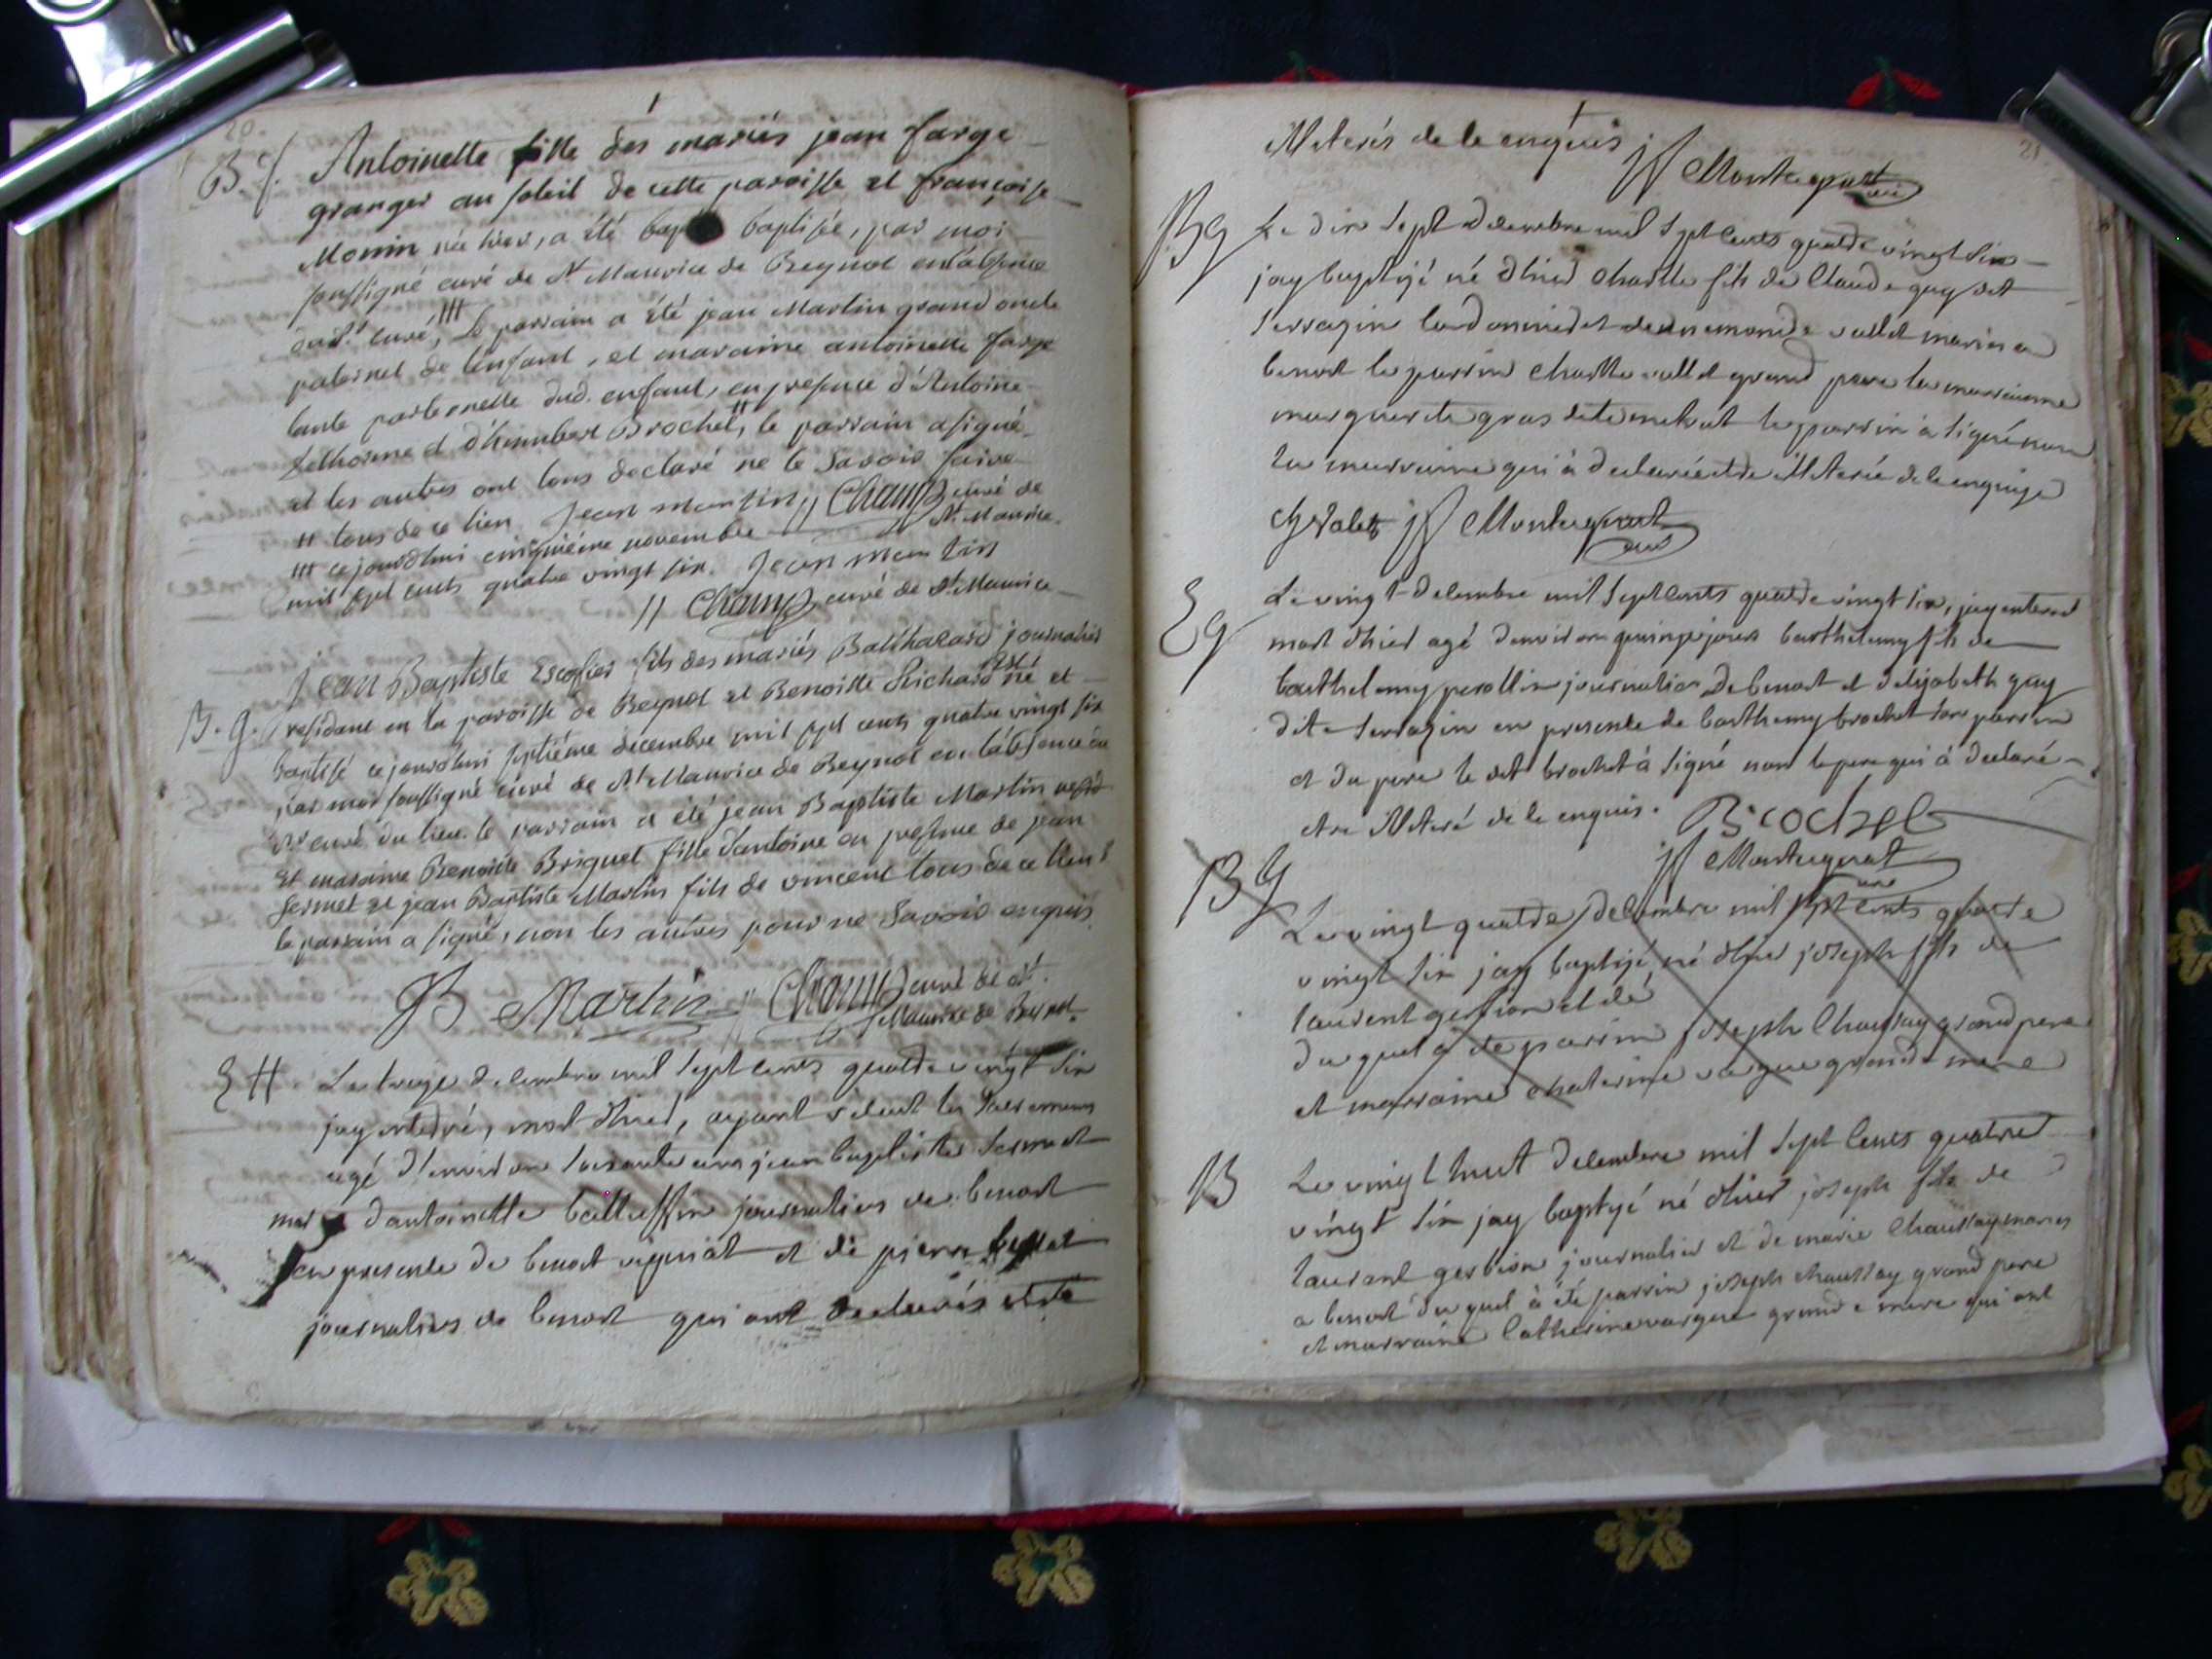 20.
B. f. Antoinette fille des mariés jean farge
granger au soleil de cette paroisse et françoise
Monin née hier, a été bap baptisée, par moi
soussigné curé de St Maurice de Beynot en l'absence
dud.t curé, ### Le parrain a été jean Martin grand oncle
paternel de l'enfant, et maraine antoinette farge
tante paternelle dud. enfant, en presence d'Antoine
et d'humbert Brochet, ## le parrain a signé
et les autres ont tous declaré ne le savoir faire
## tous de ce lieu Jean martin // Champ curé de
### ce jourdhui cinquième novembre St Maurice
mil sept cents quatre vingt six. Jean martin
// Champ curé de St Maurice
Jean Baptiste Escofier fils des mariés Balthazard journalier
B. g. residant en la paroisse de Beynot et Benoitte Richard est né et
baptisé ce jourdhui septième decembre mil sept cents quatre vingt six
par moi soussigné curé de St Maurice de Beynot en l'absence de
curé du lieu. le parrain a été jean Baptiste Martin
et maraine Benoite Briguet fille d'antoine en presence de jean
fermet et jean Baptiste Martin fils de vincent tous de ce lieu
le parrain a signé, non les autres pour ne savoir enquis
JB Martin // Champ curé de st.
Maurice de Beynot
E H Le treize decembre mil sept cents quatre vingt six
jay enterré, mort d'hier, ayant recut les sacremens
agé d'environ soixante ans jean baptiste fermet
mari d'antoinette journalier de benost
en presence de benoit et de pierre
journaliers de benost qui ont declarés etre
21
illiterés de le enquis JF Montegnat curé
B g Le dix sept decembre mil sept cents quatre vingt six
jay baptizé né d'hier charlle fils de Claude guy dit
serrazin cordonnier et de emonde vallet mariés a
benost le parrin charlle vallet grand pere la marrainne
marguerite gras le parrin à signé non
la marrainne qui à declarée etre illiterée de le enquize
ch Valet JF Montegnat curé
E g Le vingt decembre mil sept cents quatre vingt six, jay enterré
mort d'hier agé d'environ quinze jours barthelemy fils de
barthelemy perollin journalier de benost et d'elizabeth guy
dite serrazin en presence de barthemy brochet son parrin
et du pere le dit brochet à signé non le pere qui à declaré
etre illiteré de le enquis. Brochet
JF Montegnat curé
B g Le vingt quatre decembre mil sept cents quatre
vingt six jay baptizé né d'hier joseph fils de
laurent gerbion et de
du quel a été parrin joseph Chaussay grand pere
et marraine chaterine vargue grande mere
B Le vingt huit decembre mil sept cents quatre
vingt six jay baptyzé né d'hier joseph fils de
laurent gerbion journalier et de marie Chaussay mariés
a benost du quel à été parrin joseph chaussay grand pere
et marraine Catherine vargue grande mere qui ont